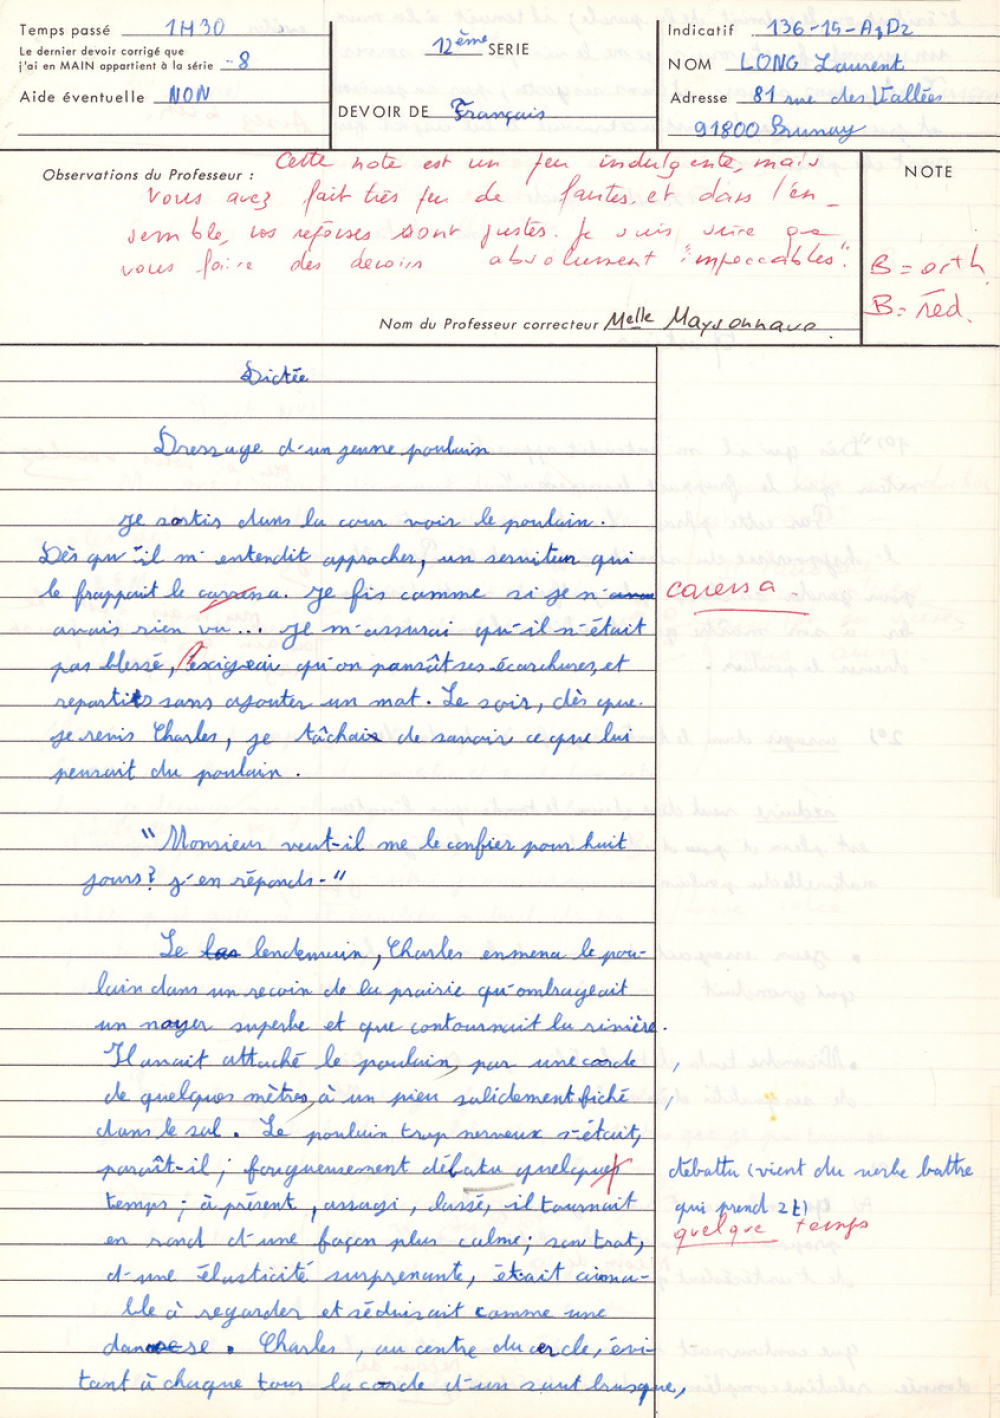 Temps passé 1H30
Le dernier devoir corrigé que
j'ai en MAIN appartient à la série -8
Aide éventuelle NON
12ème SERIE
DEVOIR DE Français
Indicatif 136-15-A3D2
NOM LONG Laurent
Adresse 81 rue des Vallées
91800 Brunoy
Observations du Professeur :
Cette note est un peu indulgente, mais
vous avez fait très peu de fautes, et dans l'en_
semble, vos réponses sont justes. Je suis sûre que
vous faire des devoirs absolument "impeccables".
Nom du Professeur correcteur Melle Maysonnave
NOTE
B = orth
B = réd.
Dictée
Dressage d'un jeune poulain
Je sortis dans la cour voir le poulain.
Dès qu'il m'entendit approcher, un serviteur qui
le frappait le caressa. Je fis comme si je n'avais
caressa
avais rien vu... Je m'assurai qu'il n'était
pas blessé, j'exigeai qu'on pansât ses écorchures, et
repartis sans ajouter un mot. Le soir, dès que
je revis Charles, je tâchai de savoir ce que lui
pensait du poulain.
"Monsieur veut-il me le confier pour huit
jours? J'en réponds-"
Le lendemain, Charles emmena le pou-
lain dans un recoin de la prairie qu'ombrageait
un noyer superbe et que contournait la rivière.
Il avait attaché le poulain, par une corde
de quelques mètres, à un pieu solidement fiché
dans le sol. Le poulain trop nerveux s'était,
paraît-il, fougueusement débatu quelques
débattu (vient du verbe battre
qui prend 2 t)
quelque temps
temps ; à présent, assagi, lassé, il tournait
en rond d'une façon plus calme ; son trot,
d'une élasticité surprenante, était aima-
ble à regarder et séduisait comme une
danse. Charles, au centre du cercle, évi-
tant à chaque tour la corde d'un saut brusque,